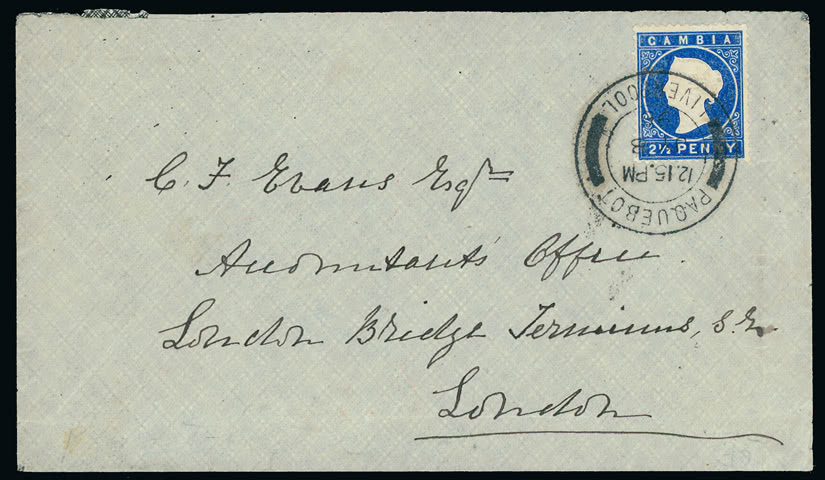 GAMBIA
2½ PENNY
LIVERPOOL
12.15.PM
PAQUEBOT
C. F. Evans Esqre
Accountants Office.
London Bridge Terminus, S.E.
London